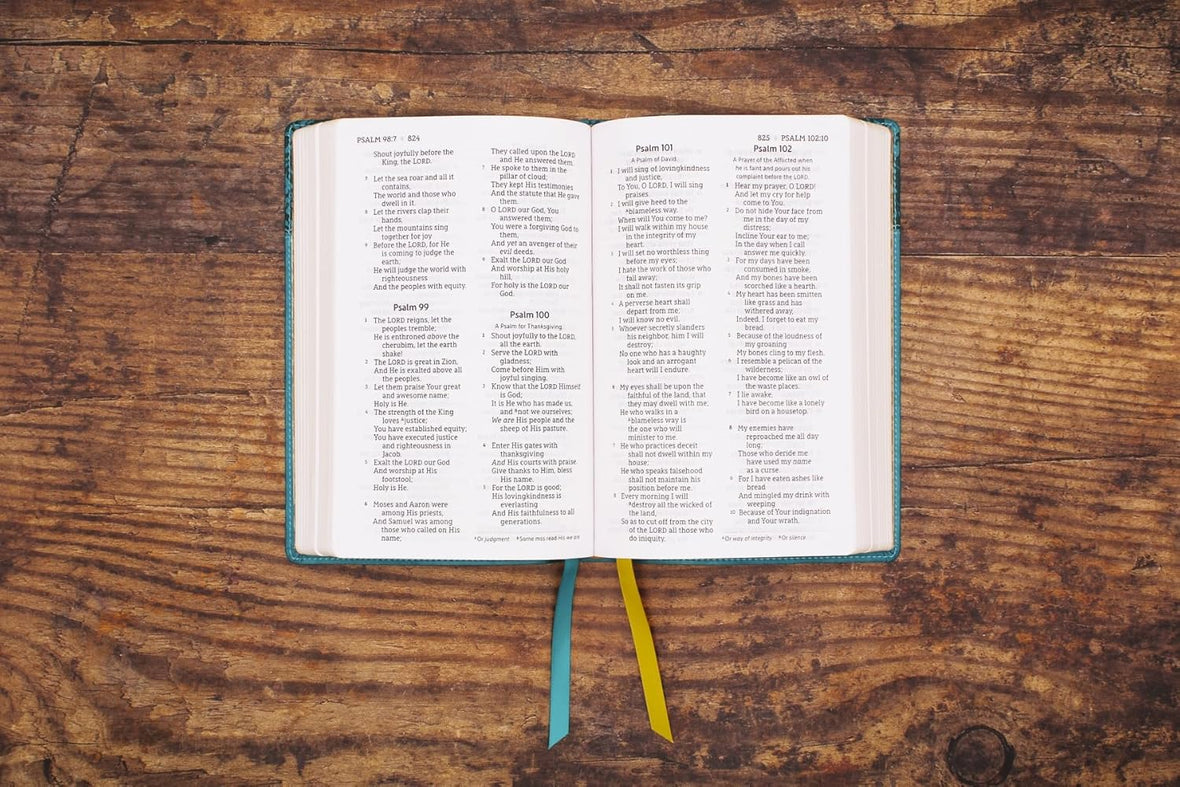 PSALM 98:7 • 824
Shout joyfully before the
King, the LORD.
7 Let the sea roar and all it
contains,
The world and those who
dwell in it.
8 Let the rivers clap their
hands.
Let the mountains sing
together for joy
9 Before the LORD, for He
is coming to judge the
earth;
He will judge the world with
righteousness
And the peoples with equity.
Psalm 99
1 The LORD reigns, let the
peoples tremble;
He is enthroned above the
cherubim, let the earth
shake!
2 The LORD is great in Zion,
And He is exalted above all
the peoples.
3 Let them praise Your great
and awesome name;
Holy is He.
4 The strength of the King
loves justice;
You have established equity;
You have executed justice
and righteousness in
Jacob.
5 Exalt the LORD our God
And worship at His
footstool;
Holy is He.
6 Moses and Aaron were
among His priests,
And Samuel was among
those who called on His
name;
They called upon the LORD
and He answered them.
7 He spoke to them in the
pillar of cloud;
They kept His testimonies
And the statute that He gave
them.
8 O LORD our God, You
answered them;
You were a forgiving God to
them,
And yet an avenger of their
evil deeds.
9 Exalt the LORD our God
And worship at His holy
hill,
For holy is the LORD our
God.
Psalm 100
A Psalm for Thanksgiving.
1 Shout joyfully to the LORD,
all the earth.
2 Serve the LORD with
gladness;
Come before Him with
joyful singing.
3 Know that the LORD Himself
is God;
It is He who has made us,
and not we ourselves;
We are His people and the
sheep of His pasture.
4 Enter His gates with
thanksgiving
And His courts with praise.
Give thanks to Him, bless
His name.
5 For the LORD is good;
His lovingkindness is
everlasting
And His faithfulness to all
generations.
Or judgment Some mss read His we are
825 • PSALM 102:10
Psalm 101
A Psalm of David.
1 I will sing of lovingkindness
and justice,
To You, O LORD, I will sing
praises.
2 I will give heed to the
blameless way.
When will You come to me?
I will walk within my house
in the integrity of my
heart.
3 I will set no worthless thing
before my eyes;
I hate the work of those who
fall away;
It shall not fasten its grip
on me.
4 A perverse heart shall
depart from me;
I will know no evil.
5 Whoever secretly slanders
his neighbor, him I will
destroy;
No one who has a haughty
look and an arrogant
heart will I endure.
6 My eyes shall be upon the
faithful of the land, that
they may dwell with me;
He who walks in a
blameless way is
the one who will
minister to me.
7 He who practices deceit
shall not dwell within my
house;
He who speaks falsehood
shall not maintain his
position before me.
8 Every morning I will
destroy all the wicked of
the land,
So as to cut off from the city
of the LORD all those who
do iniquity.
Psalm 102
A Prayer of the Afflicted when
he is faint and pours out his
complaint before the LORD.
1 Hear my prayer, O LORD!
And let my cry for help
come to You.
2 Do not hide Your face from
me in the day of my
distress;
Incline Your ear to me;
In the day when I call
answer me quickly.
3 For my days have been
consumed in smoke,
And my bones have been
scorched like a hearth.
4 My heart has been smitten
like grass and has
withered away,
Indeed, I forget to eat my
bread.
5 Because of the loudness of
my groaning
My bones cling to my flesh.
6 I resemble a pelican of the
wilderness;
I have become like an owl of
the waste places.
7 I lie awake,
I have become like a lonely
bird on a housetop.
8 My enemies have
reproached me all day
long;
Those who deride me
have used my name
as a curse.
9 For I have eaten ashes like
bread
And mingled my drink with
weeping
10 Because of Your indignation
and Your wrath,
Or way of integrity Or silence